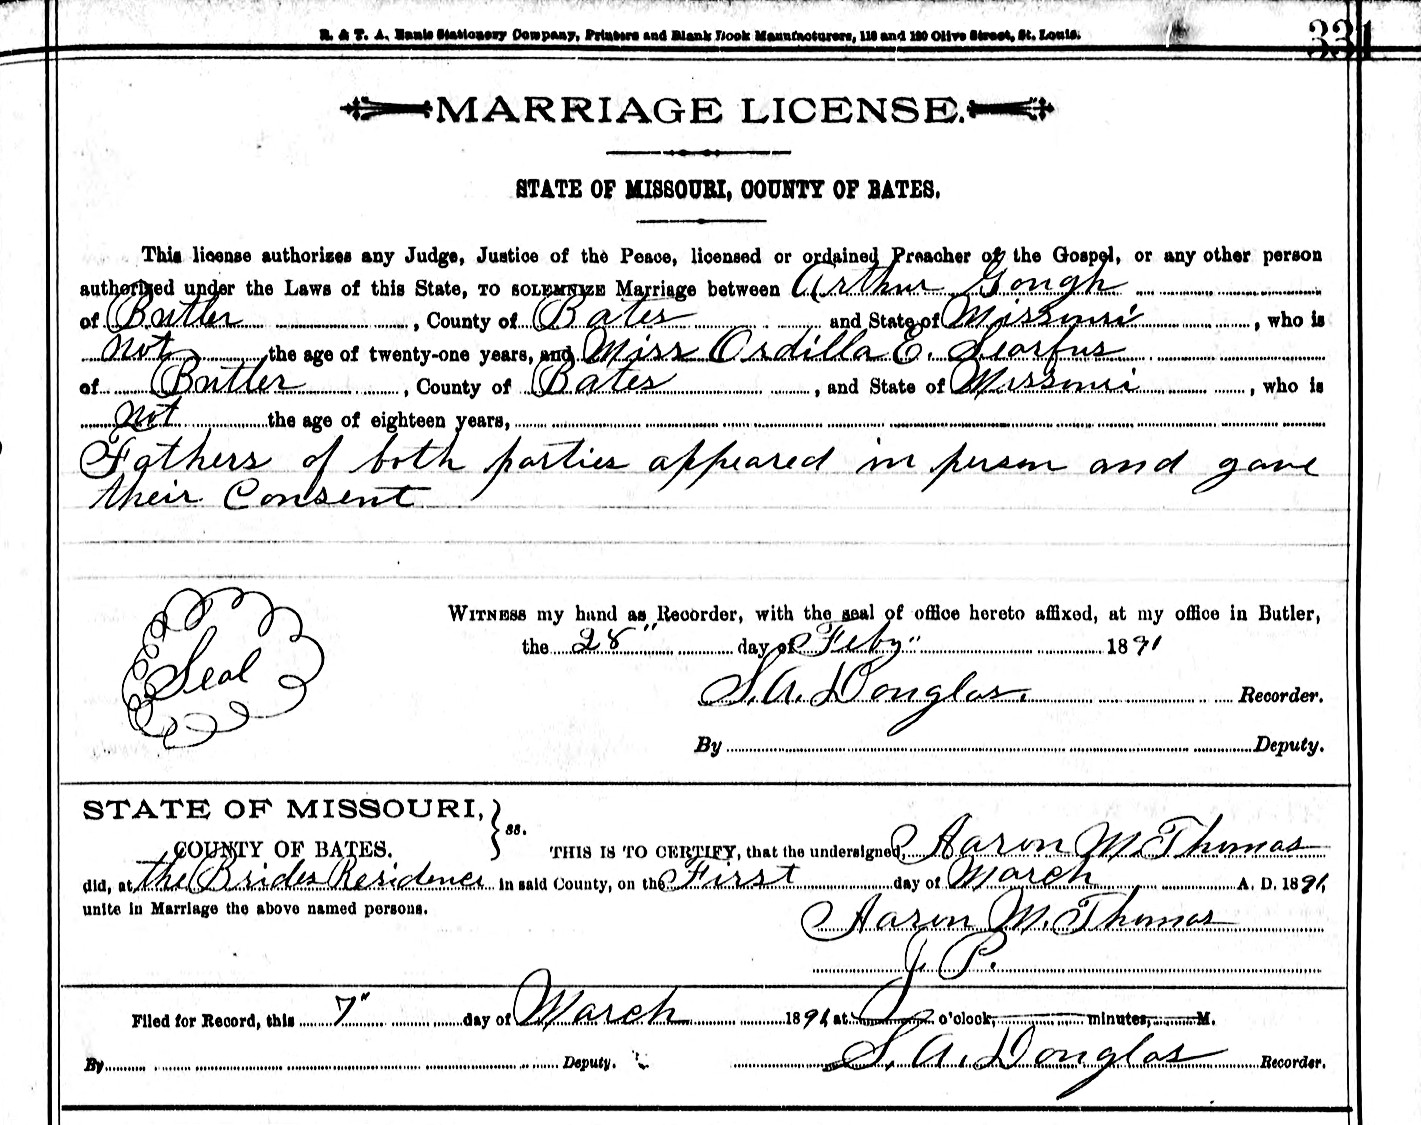 R. & T. A. Ennis Stationery Company, Printers and Blank Book Manufacturers, 118 and 120 Olive Street, St. Louis.
331
MARRIAGE LICENSE.
STATE OF MISSOURI, COUNTY OF BATES.
This license authorizes any Judge, Justice of the Peace, licensed or ordained Preacher of the Gospel, or any other person
authorized under the Laws of this State, TO SOLEMNIZE Marriage between Arthur Gough
of Butler, County of Bates and State of Missouri, who is
not the age of twenty-one years, and Miss Ordilla E. Searfus
of Butler, County of Bates, and State of Missouri, who is
not the age of eighteen years,
Fathers of both parties appeared in person and gave
their Consent
WITNESS my hand as Recorder, with the seal of office hereto affixed, at my office in Butler,
Seal
the 28" day of Feby" 1891
S. A. Douglas. Recorder.
By Deputy.
STATE OF MISSOURI,
COUNTY OF BATES. } ss.
THIS IS TO CERTIFY, that the undersigned, Aaron M. Thomas
did, at the Brides Residence in said County, on the First day of March A. D. 1891,
unite in Marriage the above named persons.
Aaron M. Thomas
J. P.
Filed for Record, this 7" day of March 1891, at o'clock, minutes, M.
By Deputy. S. A. Douglas Recorder.